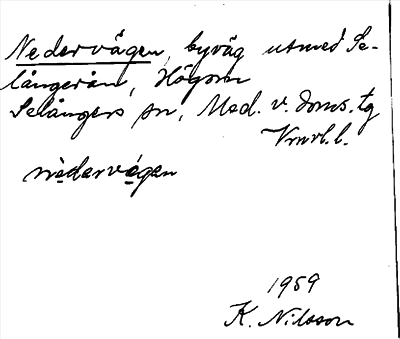 Nedervägen, byväg utmed Se-
långerån, Högom
Selångers sn, Med. v. doms. tg
Vmrl. l.
nèdarvé̱gen
1959
K. Nilsson